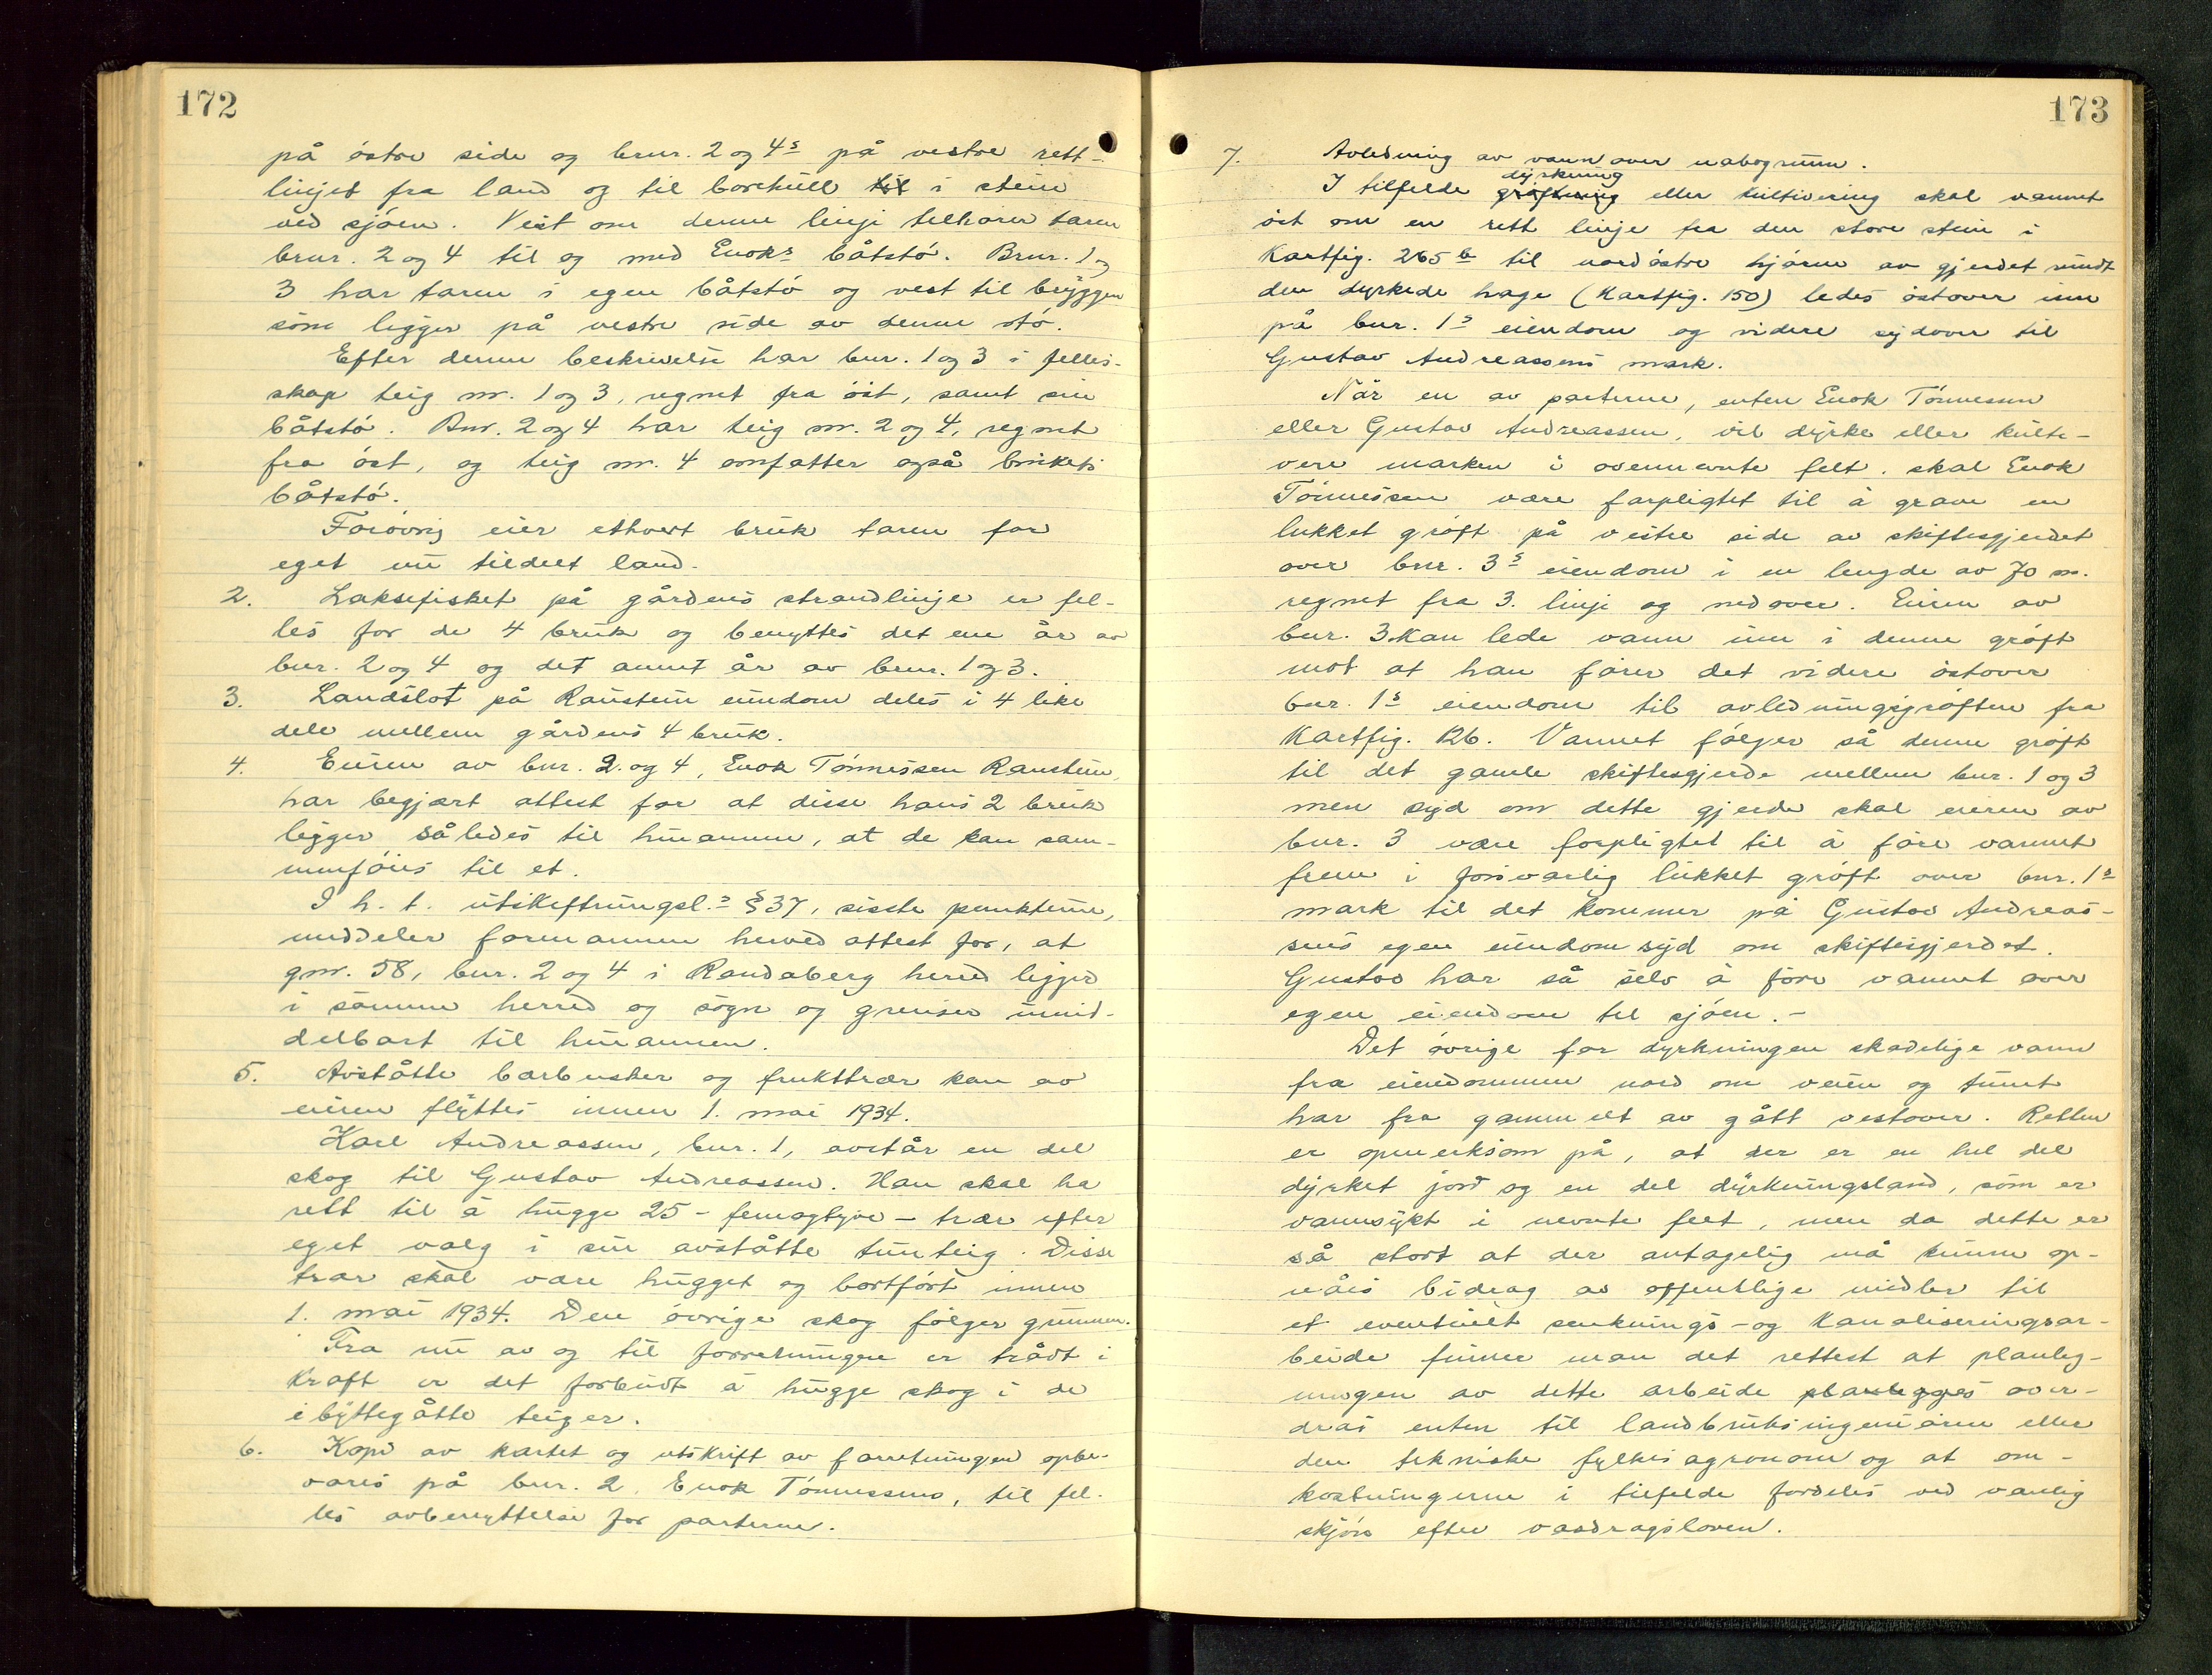 172
på östre side og brnr. 2 og 4s på vestre rett-
linjet fra land og til borehull til i stein
ved sjöen. Vest om denne linje tilhörer taren
brnr. 2 og 4 til og med Enoks båtstö. Brnr. 1 og
3 har taren i egen båtstö og vest til bryggen
som ligger på vestre side av denne stö.
Efter denne beskrivelse har bnr. 1 og 3 i felles-
skap teig nr. 1 og 3, regnet fra öst, samt sin
båtstö. Bnr. 2 og 4 har teig nr. 2 og 4, regnet
fra öst, og teig nr. 4 omfatter også brukets
båtstö.
Forövrig eier ethvert bruk taren for
eget nu tildelt land.
2. Laksefisket på gårdens strandlinje er fel-
les for de 4 bruk og benyttes det ene år av
bnr. 2 og 4 og det annet år av bnr. 1 og 3.
3. Landslot på Raustein eiendom deles i 4 like
dele mellem gårdens 4 bruk.
4. Eieren av bnr. 2. og 4, Enok Tönnessen Raustein,
har begjært attest for at disse hans 2 bruk
ligger således til hinannen, at de kan sam-
menföies til et.
I h. t. utskiftningsl.s § 37, siste punktene,
meddeler formannen herved attest for, at
gnr. 58, bnr. 2 og 4 i Randaberg herred ligger
i samme herred og sogn og grenser umid-
delbart til hinannen.
5. Avståtte bærbusker og frukttrær kan av
eieren flyttes innen 1. mai 1934.
Karl Andreassen, bnr. 1, avstår en del
skog til Gustav Andreassen. Han skal ha
rett til å hugge 25 - femogtyve - trær efter
eget valg i sin avståtte tunteig. Disse
trær skal være hugget og bortfört innen
1. mai 1934. Den övrige skog fölger grunnen.
Fra nu av og til forretningen er trådt i
kraft er det forbudt å hugge skog i de
i byttegåtte teiger.
6. Kopi av kartet og utskrift av forretningen opbe-
vares på bnr. 2, Enok Tönnessens, til fel-
les avbenyttelse for partene.
173
7. Avledning av vann over nabogrunn.
dyrkning
I tilfelde gröftning eller kultivering skal vannet
öst om en rett linje fra den store stein i
Kartfig. 265 b til nordöstre hjörne av gjerdet rundt
den dyrkede hage (Kartfig. 150) ledes östover inn
på bnr. 1s eiendom og videre sydover til
Gustav Andreassens mark.
Når en av partene, enten Enok Tönnessen
eller Gustav Andreassen, vil dyrke eller kulti-
vere marken i ovennevnte felt, skal Enok
Tönnessen være forpligtet til å grave en
lukket gröft på vestre side av skiftesgjerdet
over bnr. 3s eiendom i en lengde av 70 m.
regnet fra 3. linje og nedover. Eieren av
bnr. 3 kan lede vann inn i denne gröft
mot at han förer det videre östover
bnr. 1s eiendom til avledningsgröften fra
Kartfig. 126. Vannet fölger så denne gröft
til det gamle skiftesgjerde mellem bnr. 1 og 3
men syd om dette gjerde skal eieren av
bnr. 3 være forpligtet til å före vannet
frem i forsvarlig lukket gröft over bnr. 1s
mark til det kommer på Gustav Andreas-
sens egen eiendom syd om skiftesgjerdet.
Gustav har så selv å före vannet over
egen eiendom til sjöen. -
Det övrige for dyrkningen skadelige vann
fra eiendommen nord om veien og tunet
har fra gammelt av gått vestover. Retten
er opmerksom på, at der er en hel del
dyrket jord og en del dyrkningsland, som er
vannsykt i nevnte felt, men da dette er
så stort at der antagelig må kunne op-
nåes bidrag av offentlige midler til
et eventuelt senknings- og kanaliseringsar-
beide finner man det rettest at planleg-
ningen av dette arbeide planlegges over-
dras enten til landbruksingeniören eller
den tekniske fylkesagronom og at om-
kostningene i tilfelde fordeles ved vanlig
skjön efter vasdragsloven.